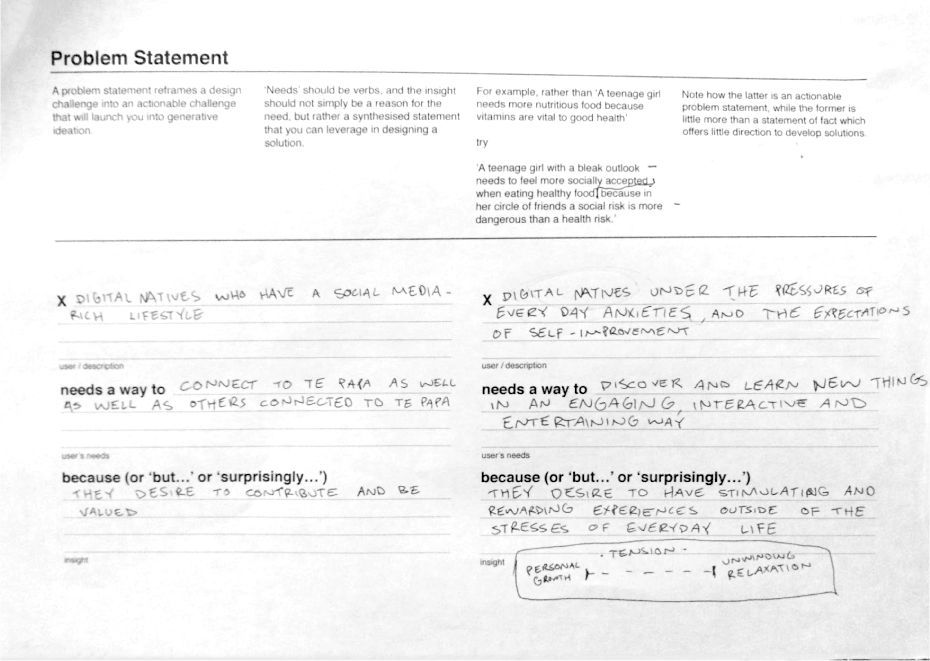 Problem Statement
A problem statement reframes a design
challenge into an actionable challenge
that will launch you into generative
ideation.
'Needs' should be verbs, and the insight
should not simply be a reason for the
need, but rather a synthesised statement
that you can leverage in designing a
solution.
For example, rather than 'A teenage girl
needs more nutritious food because
vitamins are vital to good health'
try
'A teenage girl with a bleak outlook
needs to feel more socially accepted
when eating healthy food, because in
her circle of friends a social risk is more
dangerous than a health risk.'
Note how the latter is an actionable
problem statement, while the former is
little more than a statement of fact which
offers little direction to develop solutions.
X DIGITAL NATIVES WHO HAVE A SOCIAL MEDIA-
RICH LIFESTYLE
user / description
needs a way to CONNECT TO TE PAPA AS WELL
AS WELL AS OTHERS CONNECTED TO TE PAPA
user's needs
because (or 'but...' or 'surprisingly...')
THEY DESIRE TO CONTRIBUTE AND BE
VALUED
insight
X DIGITAL NATIVES UNDER THE PRESSURES OF
EVERY DAY ANXIETIES, AND THE EXPECTATIONS
OF SELF-IMPROVEMENT
user / description
needs a way to DISCOVER AND LEARN NEW THINGS
IN AN ENGAGING, INTERACTIVE AND
ENTERTAINING WAY
user's needs
because (or 'but...' or 'surprisingly...')
THEY DESIRE TO HAVE STIMULATING AND
REWARDING EXPERIENCES OUTSIDE OF THE
STRESSES OF EVERYDAY LIFE
insight
- TENSION -
PERSONAL
GROWTH
UNWINDING
RELAXATION